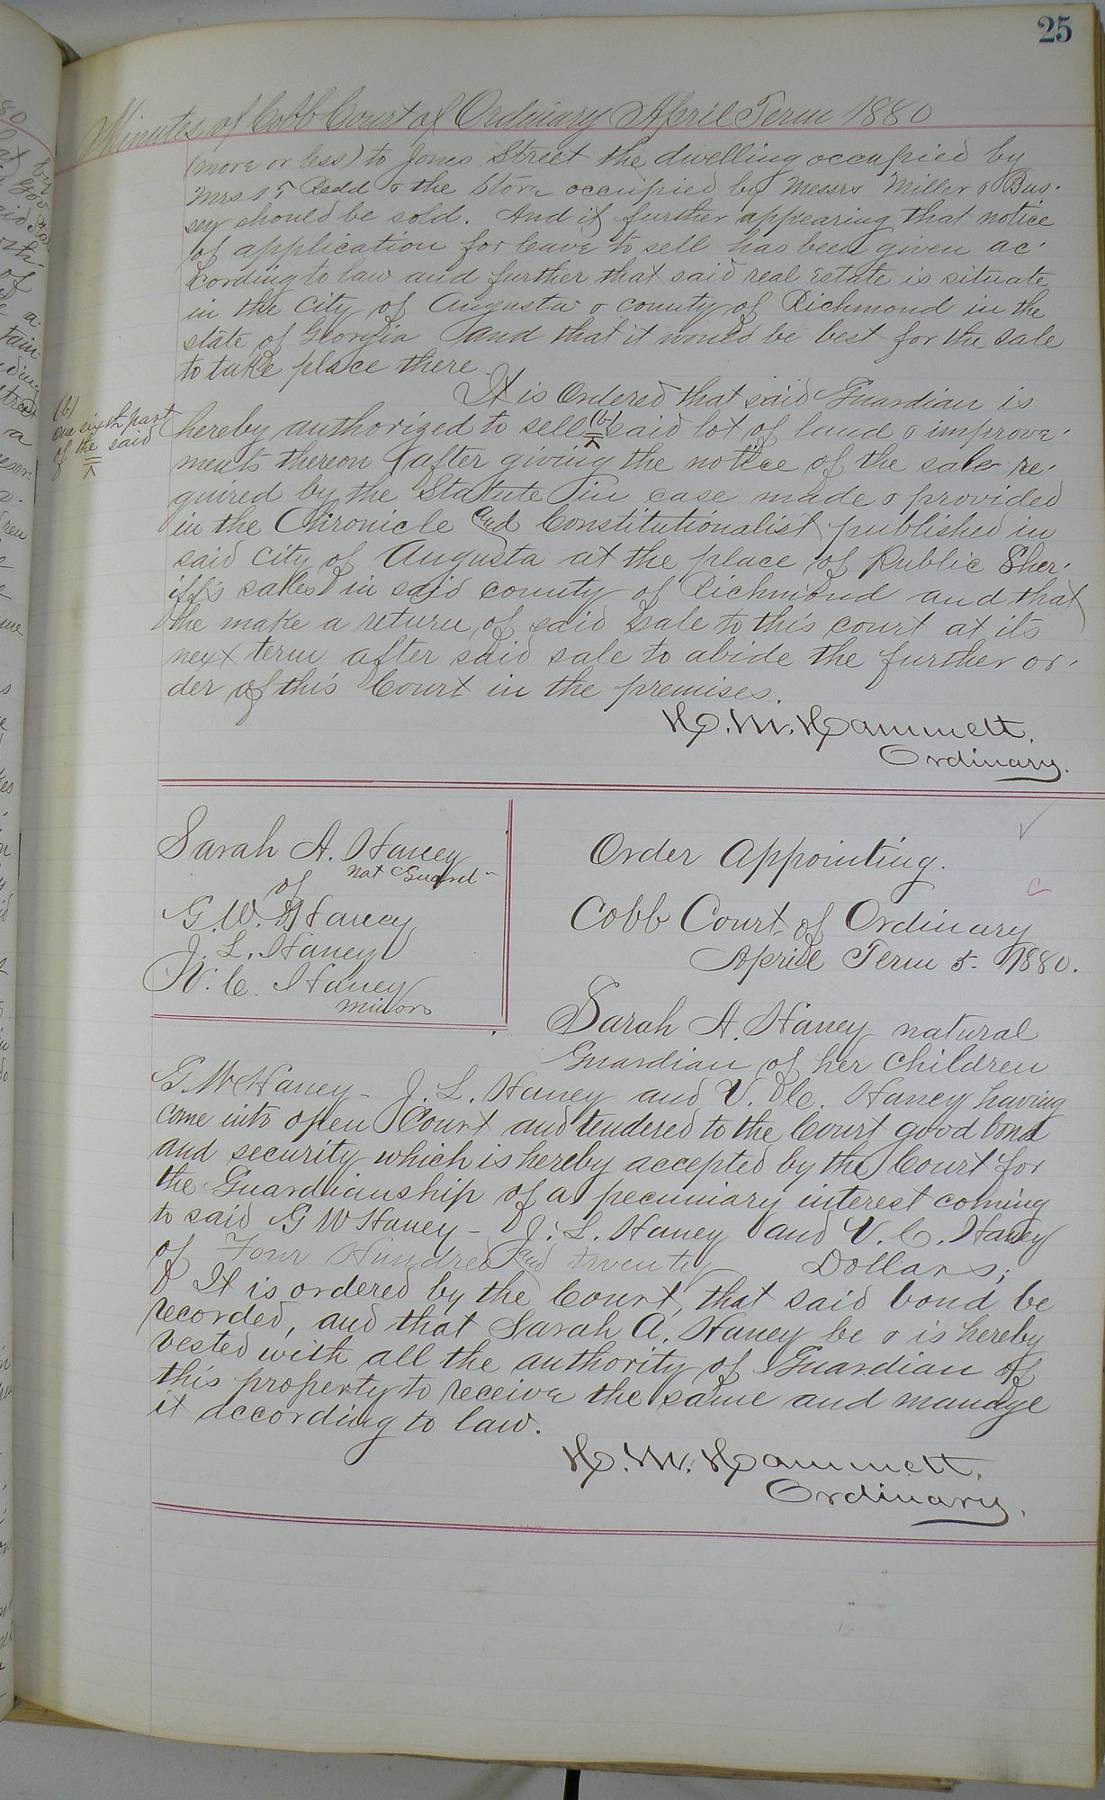 25
Minutes of Cobb Court of Ordinary April Term 1880
(more or less) to Jones Street the dwelling occupied by
Mrs Redd & the Store occupied by Messrs Miller & Bus-
sey should be sold. And it further appearing that notice
of application for leave to sell has been given ac-
cording to law and further that said real Estate is situate
in the City of Augusta & county of Richmond in the
state of Georgia and that it would be best for the sale
to take place there
It is Ordered that said Guardian is
hereby authorized to sell (b) said lot of land & improve-
(b)
one sixth part
of the said
ments thereon (after giving the notice of the sale re-
quired by the Statute in case made & provided
in the Chronicle and Constitutionalist published in
said City of Augusta at the place of Public Sher-
iff's sales) in said county of Richmond and that
he make a return of said Sale to this court at its
next term after said sale to abide the further or-
der of this Court in the premises.
H. M. Hammett.
Ordinary.
Sarah A. Haney
Nat Guard-
of
G. W. Haney
J. L. Haney
V. C. Haney
minors
Order Appointing.
Cobb Court of Ordinary
April Term 5. 1880.
Sarah A. Haney natural
Guardian of her children
G. W Haney - J. L. Haney and V. C. Haney having
come into open Court and tendered to the Court good bond
and security which is hereby accepted by the Court for
the Guardianship of a pecuniary interest coming
to said G W Haney - J. L. Haney and V. C. Haney
of Four Hundred and twenty Dollars;
It is ordered by the Court, that said bond be
recorded, and that Sarah A. Haney be & is hereby
vested with all the authority of Guardian of
this property to receive the same and manage
it according to law.
H. M. Hammett.
Ordinary.